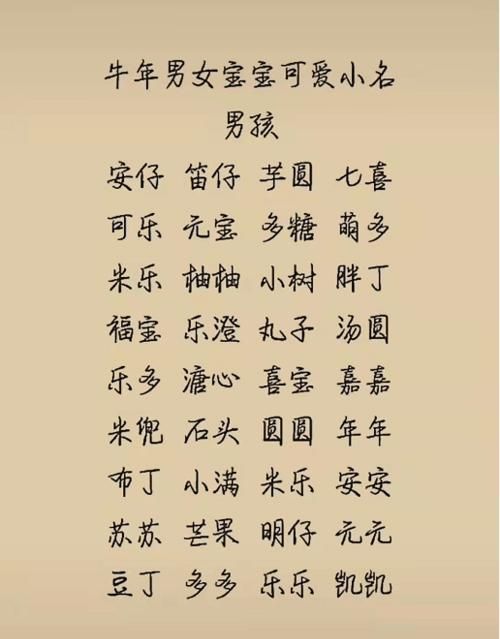 牛年男女宝宝可爱小名
男孩
安仔 笛仔 芋圆 七喜
可乐 元宝 多糖 萌多
米乐 柚柚 小树 胖丁
福宝 乐澄 丸子 汤圆
乐多 溏心 喜宝 嘉嘉
米兜 石头 圆圆 年年
布丁 小满 米乐 安安
苏苏 芒果 明仔 元元
豆丁 多多 乐乐 凯凯